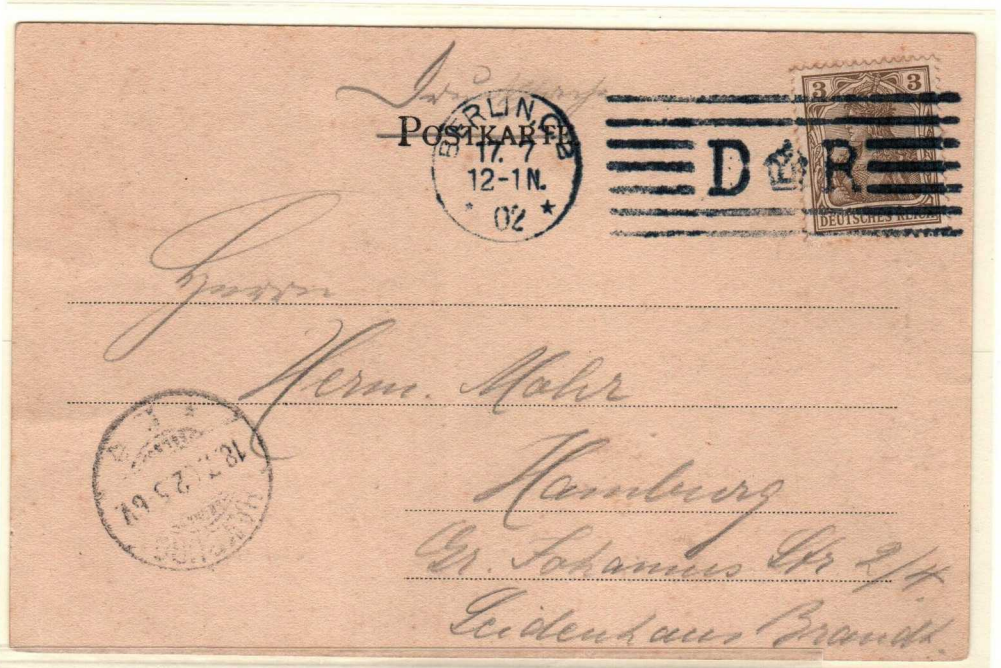 Drucksache
POSTKARTE
BERLIN, C 2
17. 7
12-1 N.
* 02 *
D R
3 3
DEUTSCHES REICH
Herrn
Herm. Mohr
Hamburg
Gr. Johannis Str 2/4.
Seidenhaus Brandt.
HAMBURG
18.7.02 5-6V